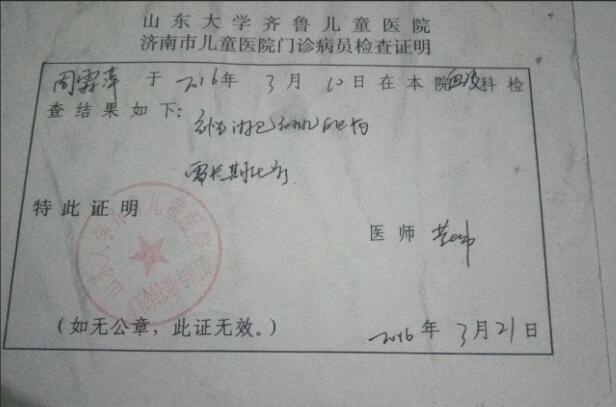 山东大学齐鲁儿童医院
济南市儿童医院门诊病员检查证明
周霖萍 于 2016年 3月 10日在本院血液科检
查结果如下:
急性淋巴细胞白血病
需长期化疗
特此证明
医师
(如无公章,此证无效。)
2016年 3月21日